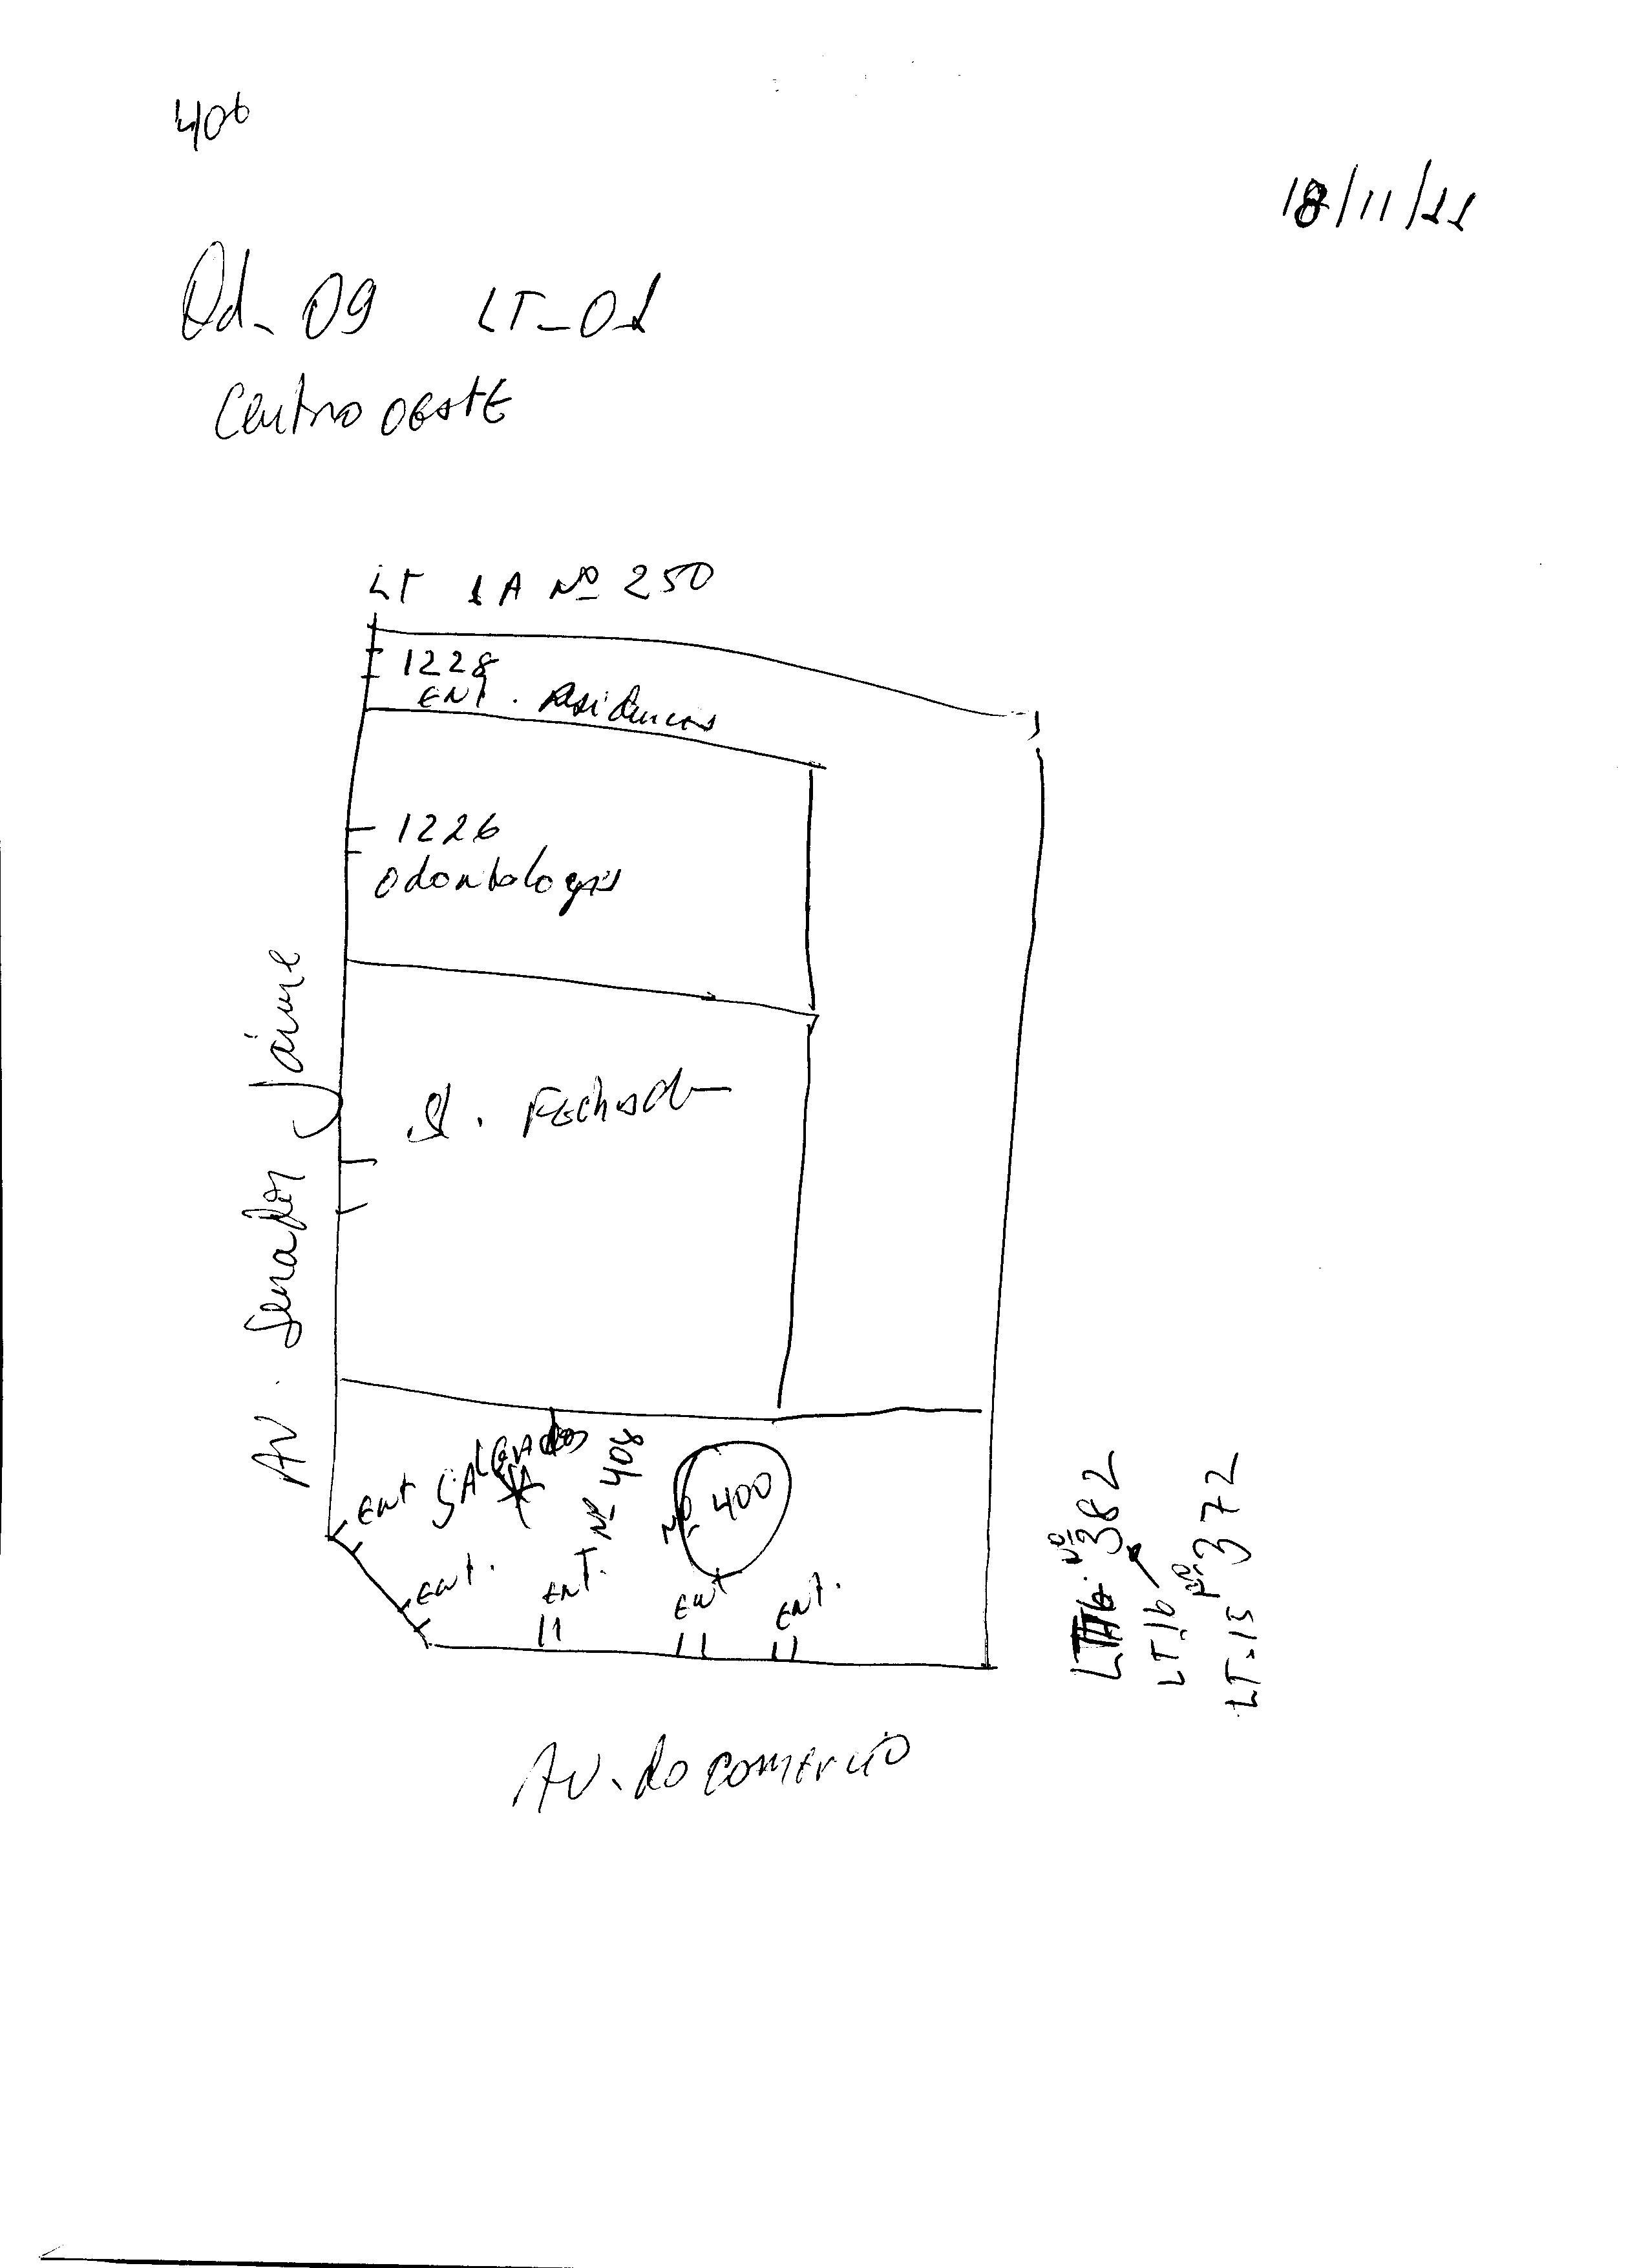 406
18/11/11
Qd- 09 LT-01
Centro OESTE
LT 1A Nº 250
1228
ENT. Residencias
1226
Odontologia
Sl. Fechada
AV. Senador Jaime
ENT SALGADOS
Nº 408
Nº 400
ENT.
ENT.
ENT
ENT.
Nº 382
LT-16
LT-15 Nº 372
AV. do comercio